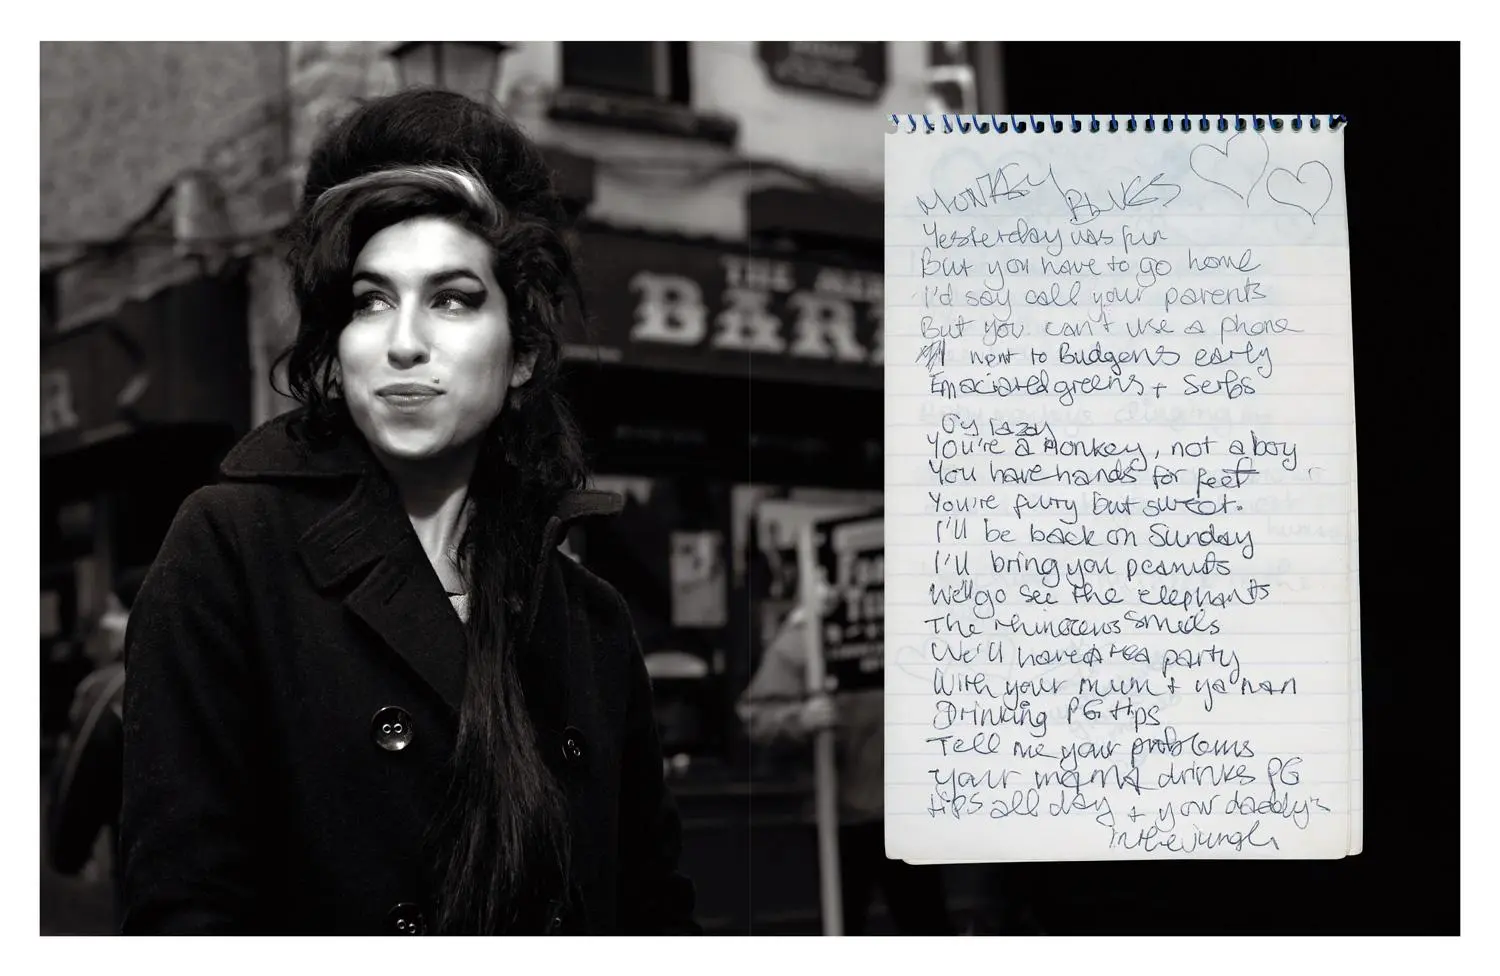 THE
BAR
MONKEY BLUES
Yesterday was fun
But you have to go home
I'd say call your parents
But you can't use a phone
went to Budgens early
Emaciated greens + Serbs
Oy lazy
You're a Monkey, not a boy
You have hands for feet
You're furry but sweet.
I'll be back on Sunday
I'll bring you peanuts
We'll go see the elephants
The rhinoceros smells
We'll have a tea party
With your mum + ya nan
Drinking PG tips
Tell me your problems
Your mama drinks PG
tips all day + your daddy's
in the jungle